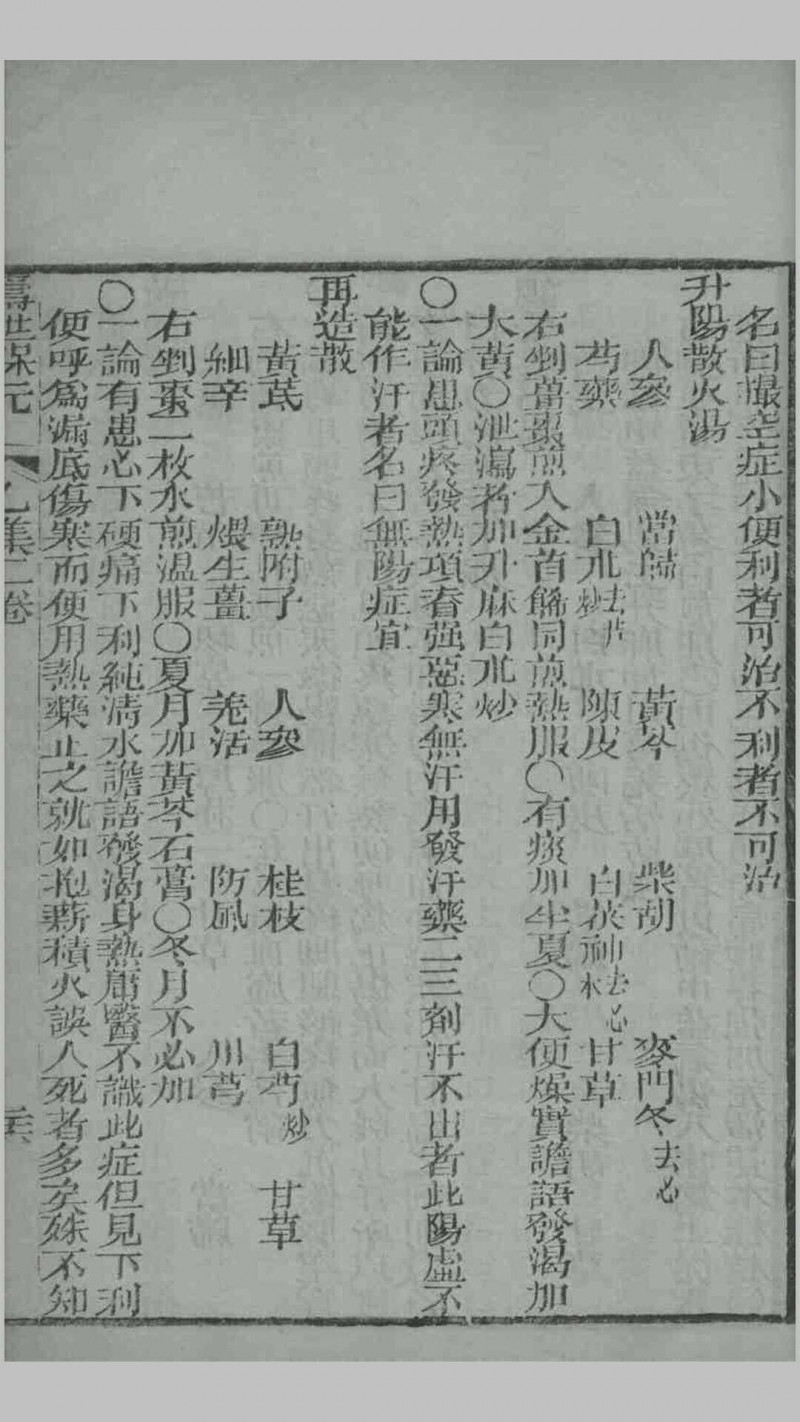 名曰撮空症小便利者可治不利者不可治
升陽散火湯
人參 當歸 黃芩 柴胡 麥門冬去心
芍藥 白朮去芦炒 陳皮 白茯神去木 甘草
右剉薑棗煎入金首餙同煎熱服〇有痰加半夏〇大便燥實譫語發渴加
大黃〇泄瀉者加升麻白朮炒
〇一論患頭疼發熱項脊强惡寒無汗用發汗藥二三劑汗不出者此陽虛不
能作汗者名曰無陽症宜
再造散
黃芪 熟附子 人參 桂枝 白芍炒 甘草
細辛 煨生薑 羌活 防風 川芎
右剉棗二枚水煎溫服〇夏月加黃芩石膏〇冬月不必加
〇一論有患心下硬痛下利純清水譫語發渴身熱庸醫不識此症但見下利
便呼爲漏底傷寒而便用熱藥止之就如抱薪積火誤人死者多矣殊不知
壽世保元 乙集二卷